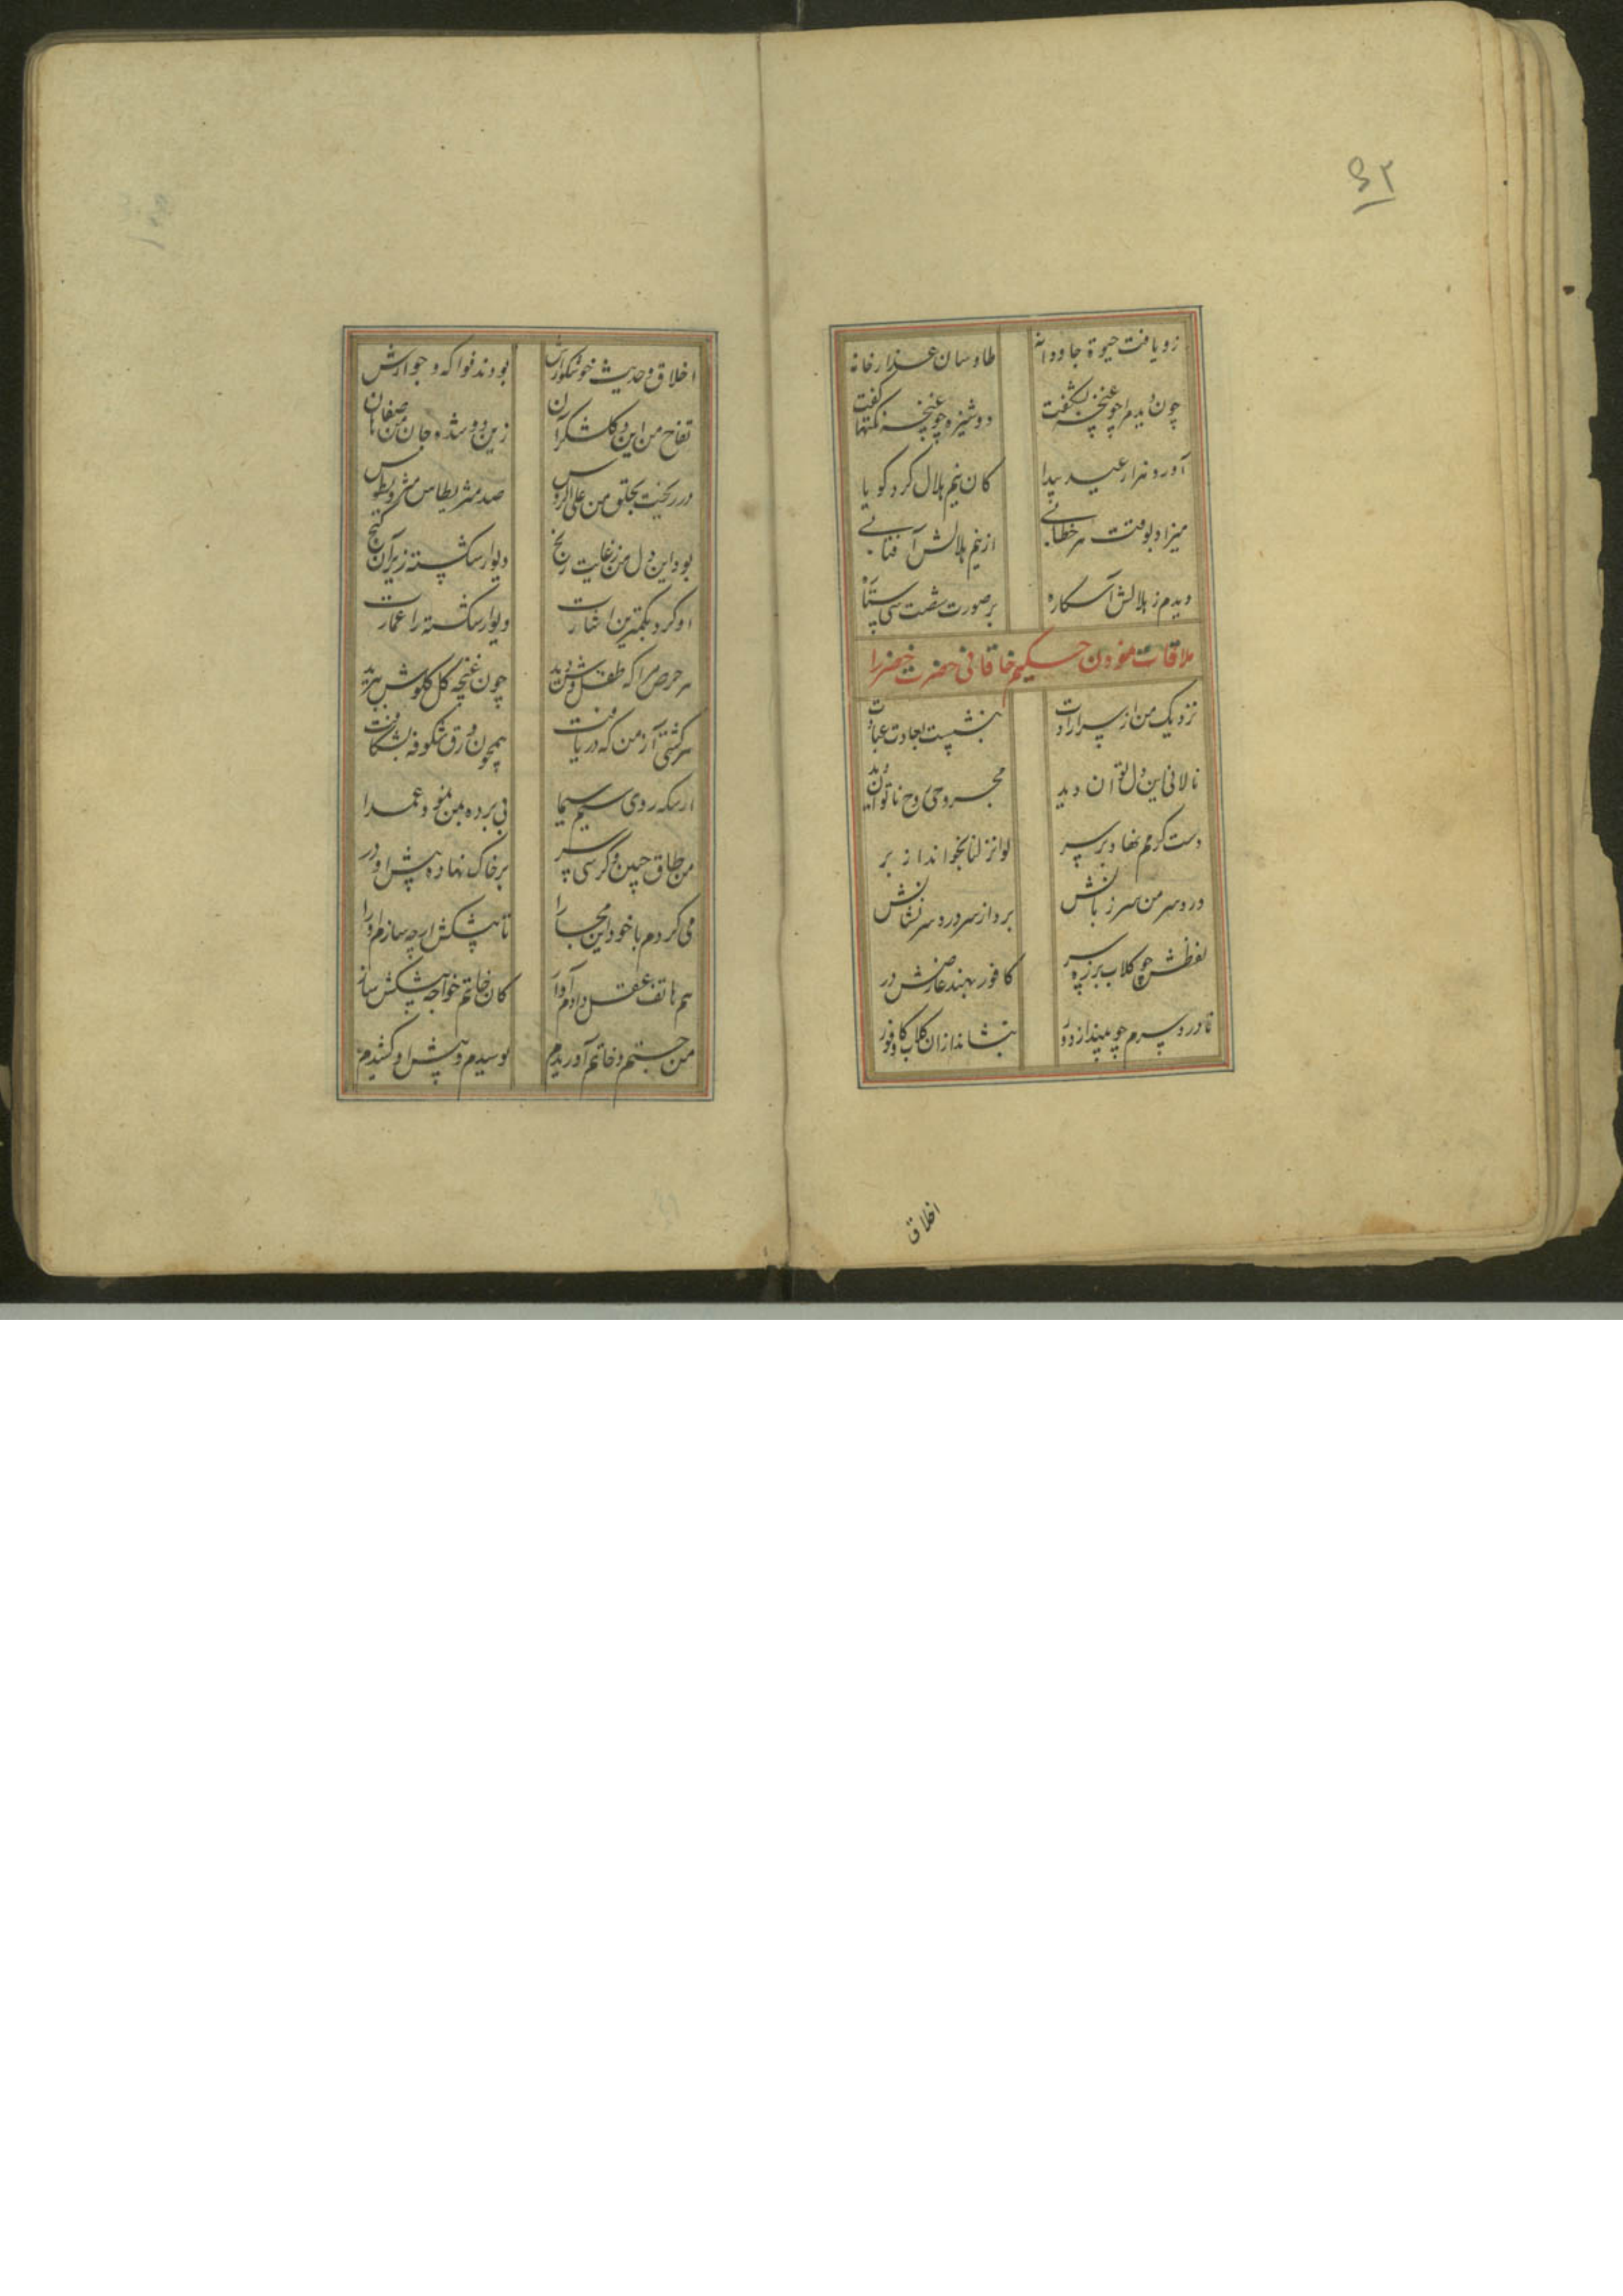 ۴۲
زو یافت حیوة جاودانه طاوسان غدارخانه
چون دیدمرا چو غنچه بشکفت دوشیزه چو غنچه نکتها گفت
آورد هزار عید پیدا کان نیم هلال کرد کویا
میزاد بوقت هر خطابی از نیم هلالش آفتابی
دیدم ز هلالش آسکاره بر صورت شصت سی ستاره
ملاقات نمودن حکیم خاقانی حضرت خضر را
نزدیک من از سر ارادت بنشست بعادت عبادت
نالانی این دل توان دید مجروحی روح ناتوان دید
دست کرمم نهاد بر سر لو انزلنا بخواند از بر
درد سر من سر زبانش برد از سر درد سر نشانش
لفظش چو کلاب برزه سر کافور بهند عارضش در
تا درد سرم چو بیند از دور بنشاند ازان کلاب و کافور
اخلاق
اخلاق و حدیث خوشکوارش بودند فواکه و جوارش
تفاح من این و کلشکر آن زین دو شده جان من صفاهان
در ریخت بحلق من علی الروس صد شربطاس مثرودیطوس
بود این دل من ز غایت رنج دیوار شکسته زیر آن کنج
او کرد بکمترین اشارت دیوار شکسته را عمارت
هر حرص مرا که طفل وش دید چون غنچه کل کلوش ببرید
هر کشتی آز من که دریافت همچون ورق شکوفه بشکافت
از سکه روی سیم سیما بی برده بمن نمود عمدا
من طاق جبین و کرسی سر بر خاک نهاده پیش او در
می کردم با خود این محابا را تا پیشکش ارچه سازم او را
هم هاتف عقل دادم آواز کان خاتم خواجه پیشکش ساز
من جستم و خاتم آوریدم بوسیدم و پیش او کشیدم